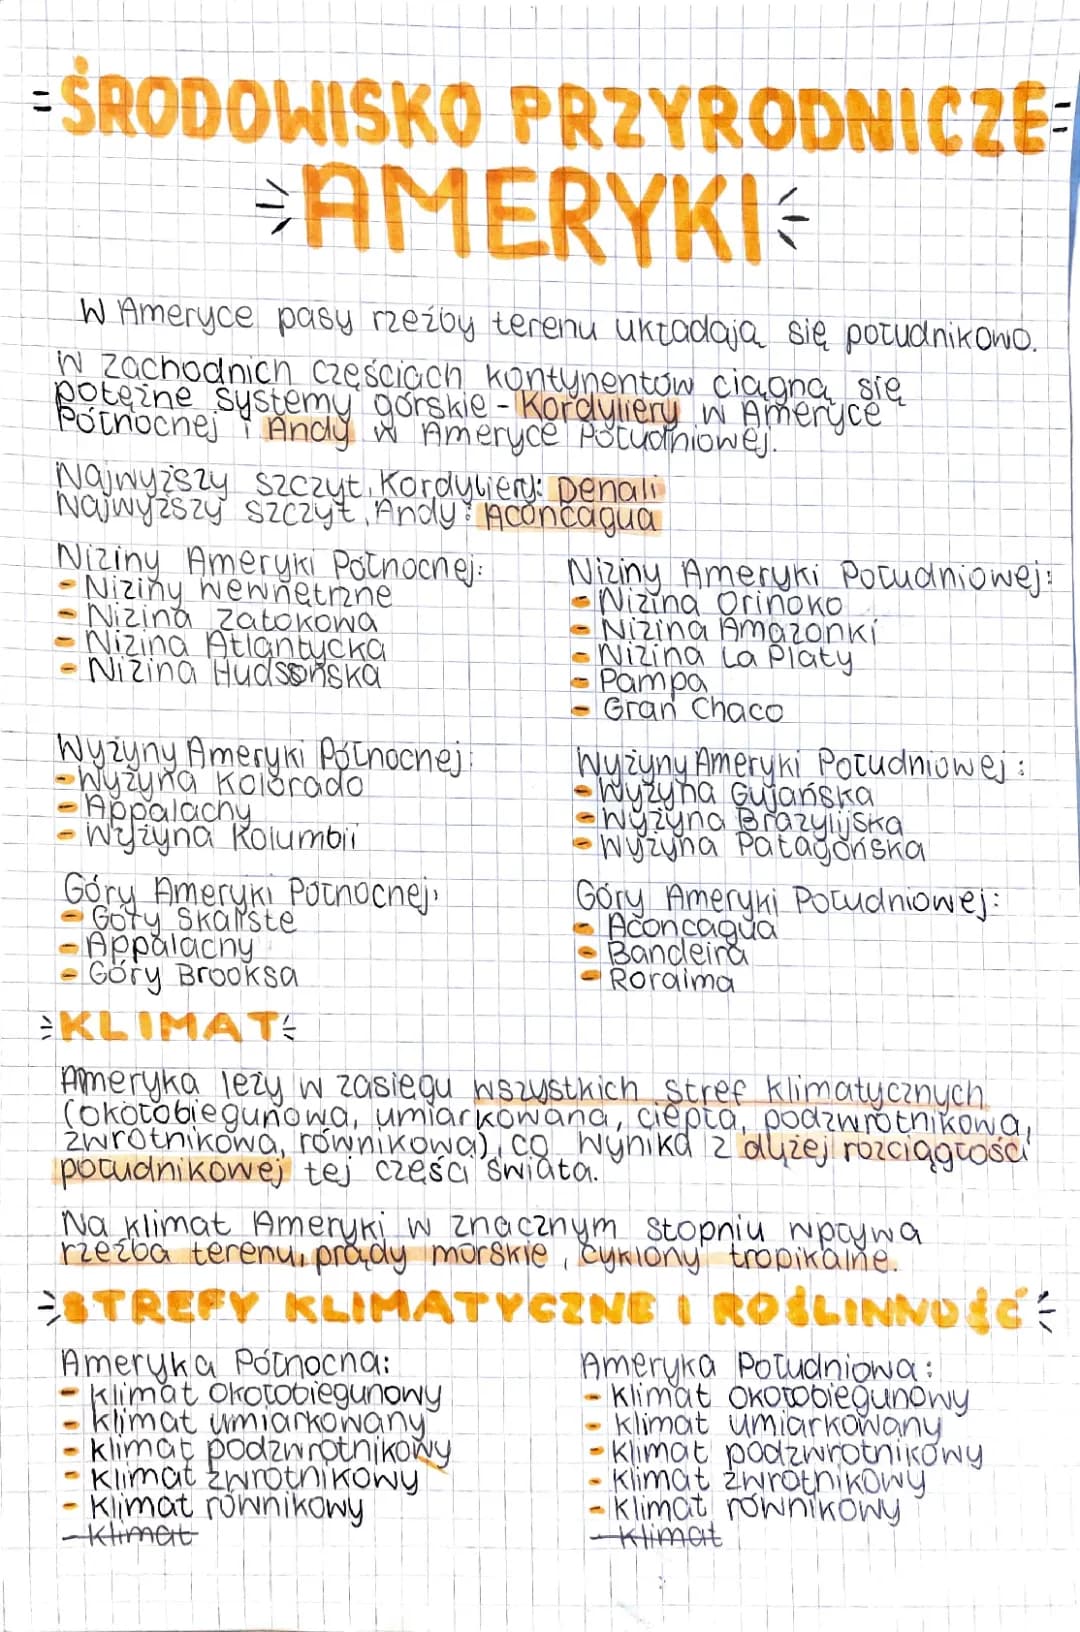 ŚRODOWISKO PRZYRODNICZE
AMERYKI
W Ameryce pasy rzeźby terenu układają się południkowo.
W zachodnich częściach kontynentów ciągną się
potężne systemy górskie - Kordyliery w Ameryce
Północnej i Andy w Ameryce Południowej.
Najwyższy szczyt, Kordyliery: Denali
Najwyższy szczyt, Andy: Aconcagua
Niziny Ameryki Północnej:
- Niziny wewnętrzne
- Nizina Zatokowa
- Nizina Atlantycka
- Nizina Hudsońska
Niziny Ameryki Południowej:
- Nizina Orinoko
- Nizina Amazonki
- Nizina La Platy
- Pampa
- Gran Chaco
Wyżyny Ameryki Północnej:
- Wyżyna Kolorado
- Appalachy
- Wyżyna Kolumbii
Wyżyny Ameryki Południowej:
- Wyżyna Gujańska
- Wyżyna Brazylijska
- Wyżyna Patagońska
Góry Ameryki Północnej:
- Góry Skaliste
- Appalachy
- Góry Brooksa
Góry Ameryki Południowej:
- Aconcagua
- Bandeira
- Roraima
KLIMAT
Ameryka leży w zasięgu wszystkich stref klimatycznych
(okołobiegunowa, umiarkowana, ciepła, podzwrotnikowa,
zwrotnikowa, równikowa), co wynika z dużej rozciągłości
południkowej tej części świata.
Na klimat Ameryki w znacznym stopniu wpływa
rzeźba terenu, prądy morskie, cyklony tropikalne.
STREFY KLIMATYCZNE I ROŚLINNOŚĆ
Ameryka Północna:
- klimat okołobiegunowy
- klimat umiarkowany
- klimat podzwrotnikowy
- klimat zwrotnikowy
- klimat równikowy
- klimat
Ameryka Południowa:
- klimat okołobiegunowy
- klimat umiarkowany
- klimat podzwrotnikowy
- klimat zwrotnikowy
- klimat równikowy
- klimat